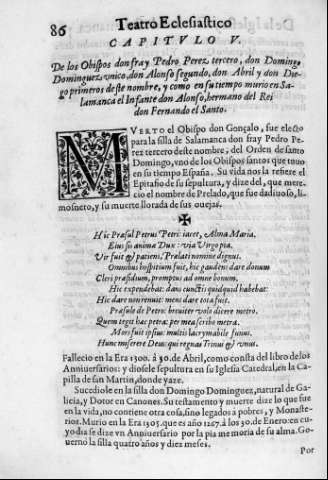 86 Teatro Eclesiastico
CAPITVLO V.
De los Obispos don fray Pedro Perez tercero, don Domingo
Dominguez, vnico, don Alonso segundo, don Abril y don Die-
go primeros de este nombre, y como en su tiempo murio en Sa-
lamanca el Infante don Alonso, hermano del Rei
don Fernando el Santo.
MVERTO el Obispo don Gonçalo, fue electo
para la silla de Salamanca don fray Pedro Pe-
rez tercero deste nombre, del Orden de santo
Domingo, vno de los Obispos santos que tuuo
en su tiempo España. Su vida nos la refiere el
Epitafio de su sepultura, y dize del, que mere-
cio el nombre de Prelado, que fue dadiuoso, li-
mosnero, y su muerte llorada de sus ouejas.
Hic Præsul Petrus Petri iacet, Alma Maria.
Eius sis anima Dux: via Virgo pia.
Vir fuit & patiens, Prælati nomine dignus.
Omnibus hospitium fuit, hic gaudens dare donum
Cleri præsidium, promptus ad omne bonum.
Hic expendebat: dans cunctis quidquid habebat:
Hic dare non renuit: mens dare tota fuit.
Præsule de Petro: breuiter volo dicere metro.
Quem tegit hac petra: per mea scribo metra.
Mors fuit ipsius: multis lacrymabile funus.
Hunc miserere Deus: qui regnas Trinus & vnus.
Fallecio en la Era 1300. à 30. de Abril, como consta del libro de los
Anniuersarios: y diosele sepultura en su Iglesia Catedral, en la Ca-
pilla de san Martin, donde yaze.
Sucediole en la silla don Domingo Dominguez, natural de Ga-
licia, y Dotor en Canones. Su testamento y muerte dize lo que fue
en la vida, no contiene otra cosa, sino legados à pobres, y Monaste-
rios. Murio en la Era 1305. que es año 1267. à los 30. de Enero: en cu-
yo dia se dize vn Anniuersario por la pia memoria de su alma. Go-
uernò la silla quatro años y diez meses.
Por